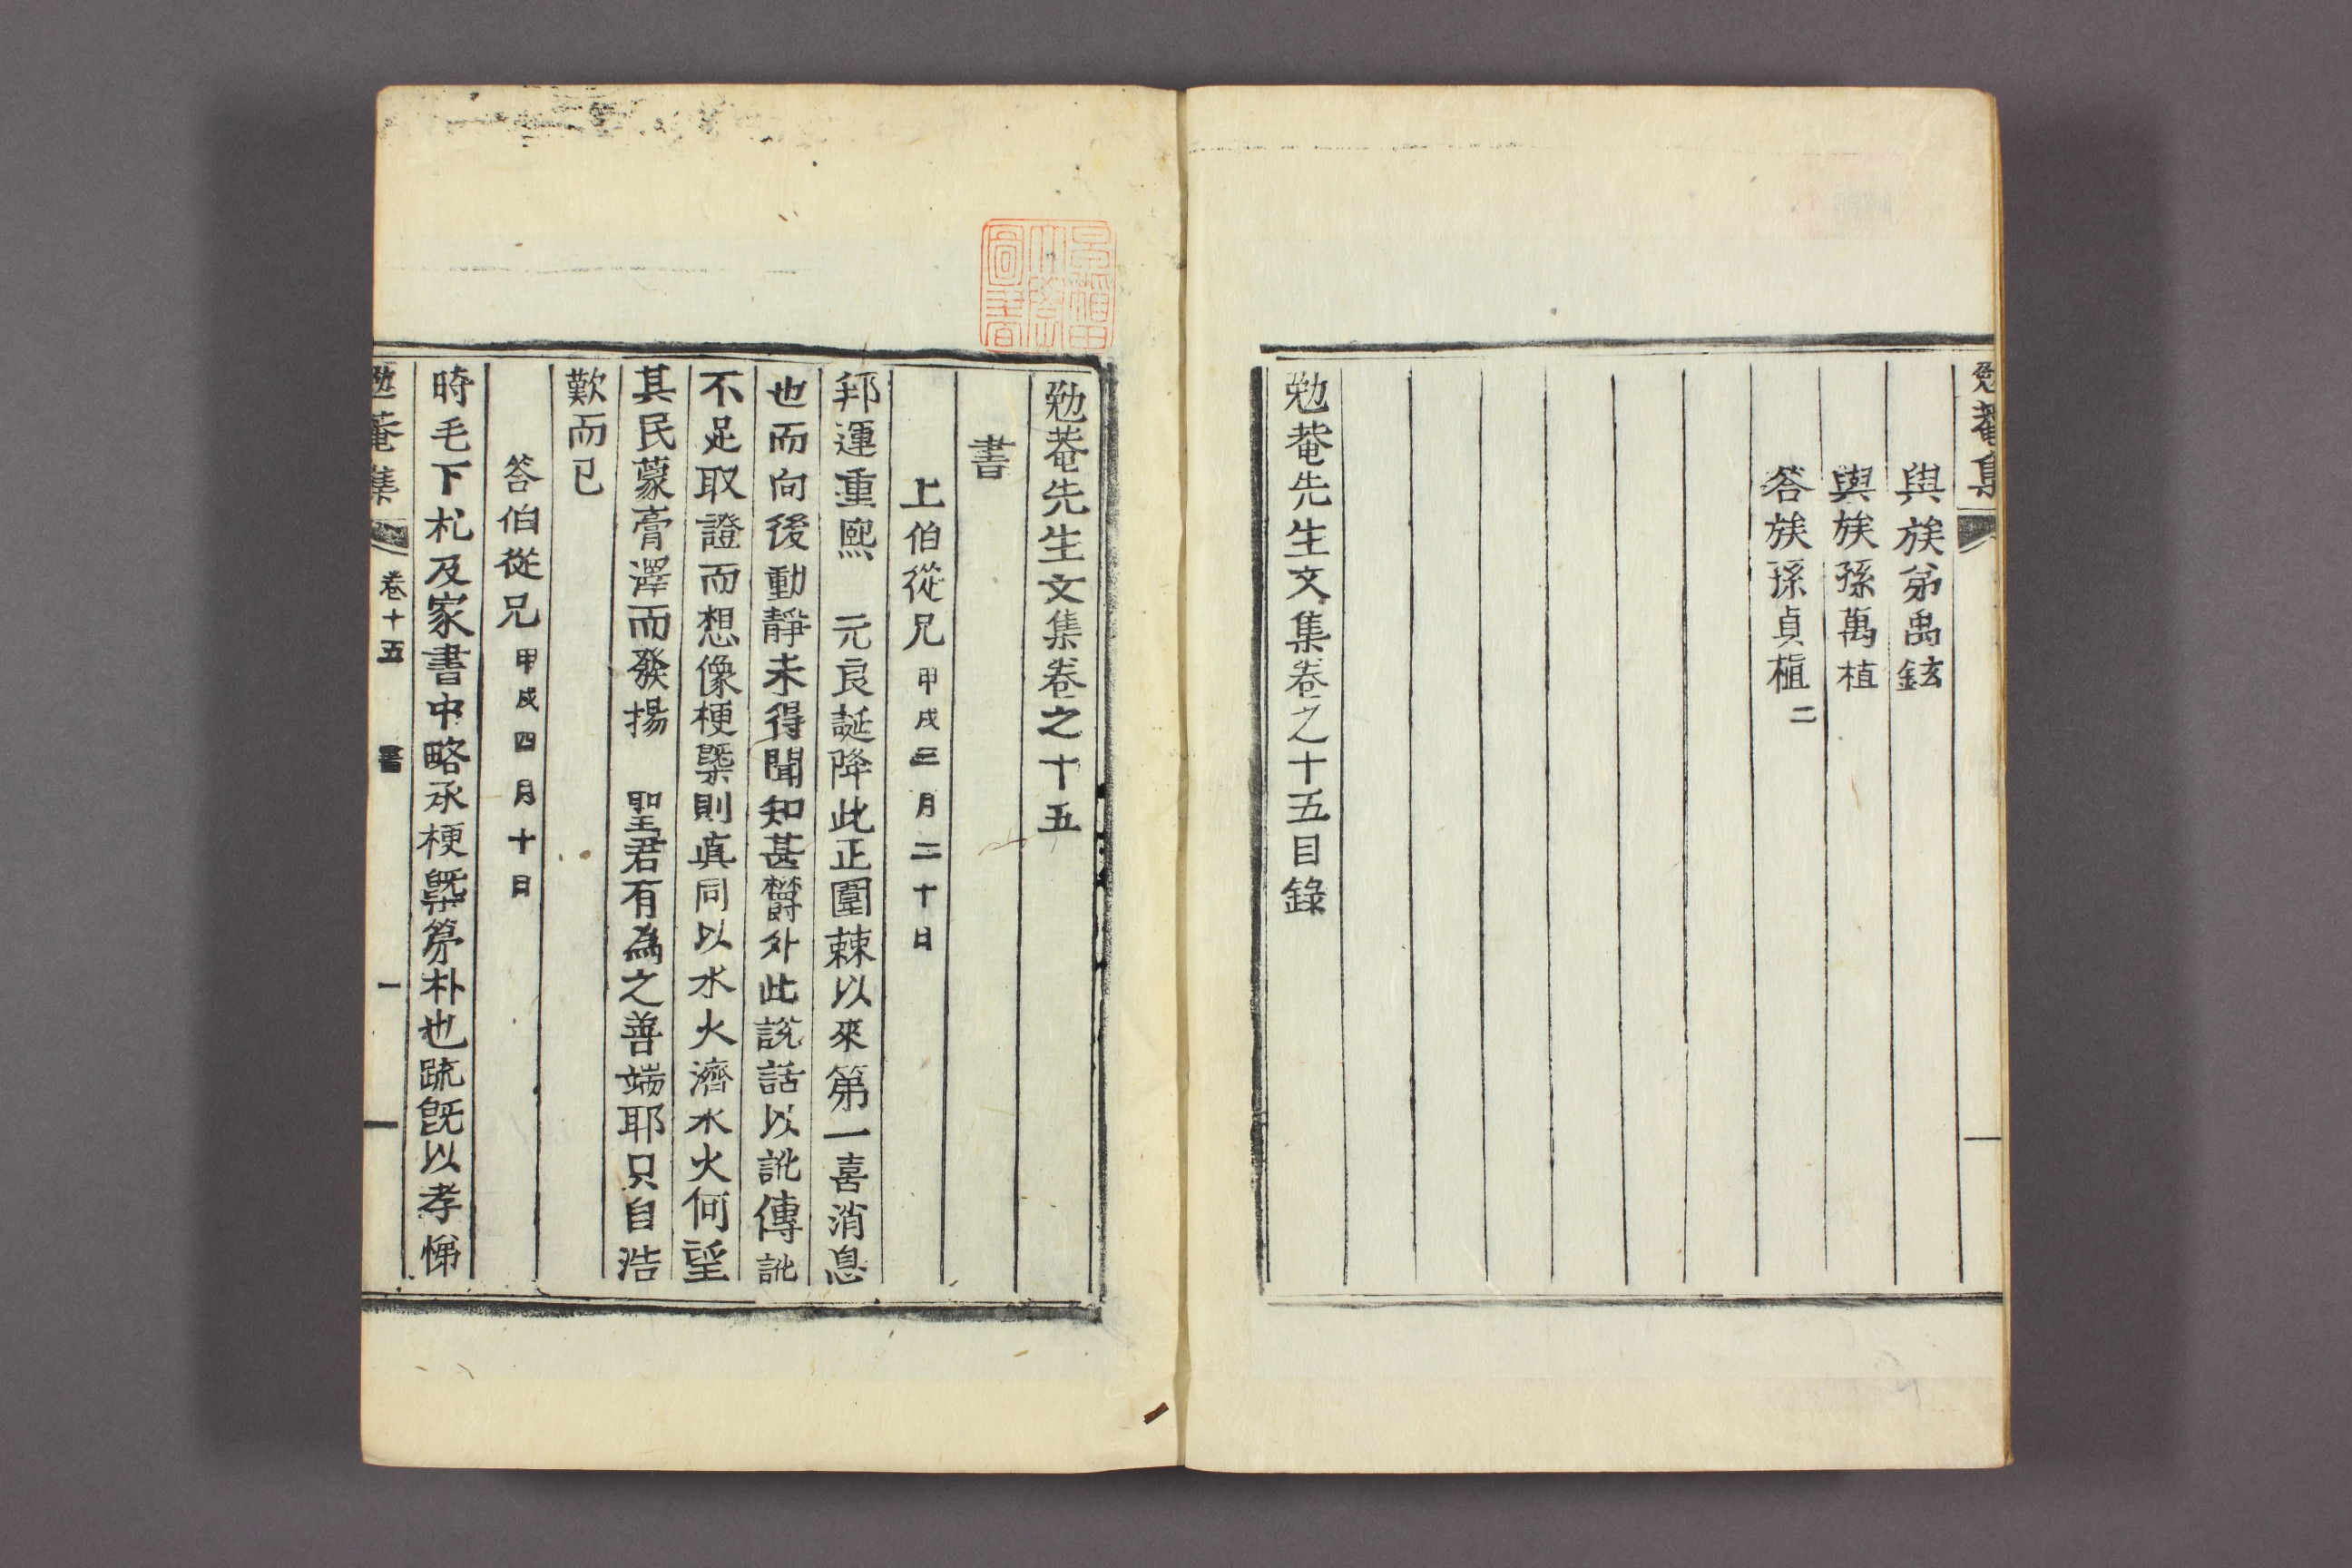 勉菴集
與族弟禹鉉
與族孫萬植
答族孫貞植 二
勉菴先生文集卷之十五目錄
早稲田大學圖書
勉菴先生文集卷之十五
書
上伯從兄 甲戌三月二十日
邦運重熙 元良誕降此正圍棘以來第一喜消息
也而向後動靜未得聞知甚欝外此說話以訛傳訛
不足取證而想像梗槩則眞同以水火濟水火何望
其民蒙膏澤而發揚 聖君有為之善端耶只自浩
歎而已
答伯從兄 甲戌四月十日
時毛下札及家書中略承梗槩篣朴也䟽旣以孝悌
勉菴集 卷十五 書 一